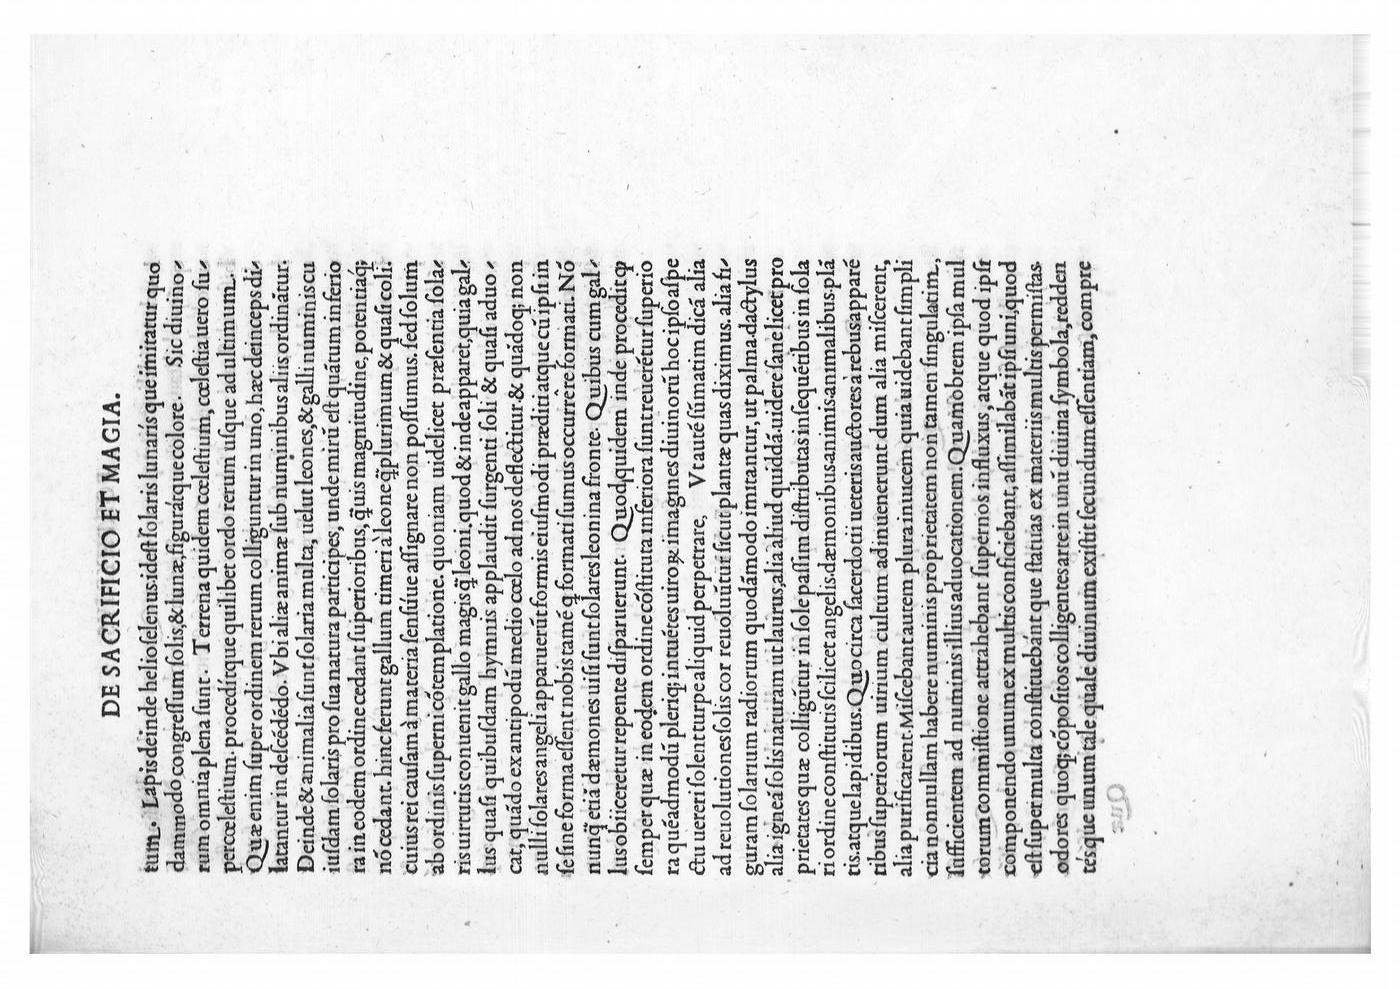 DE SACRIFICIO ET MAGIA.
tum. Lapis deinde helioselenus idest solaris lunarís que imitatur quo
dammodó congressum solis,& lunæ, figurá́tque colore. Sic diuino-
rum omnia plena sunt. Terrena quidem cœlestium, cœlestia uero su-
percœlestium. procedítque quilibet ordo rerum usque ad ultimum.
Quæ enim super ordinem rerum colliguntur in uno, hæc deinceps di-
latantur in descédédo. Vbi aliæ animæ sub numinibus aliis ordinátur.
Deinde & animalia sunt solaria multa, uelut leones,& galli numinis cu
iusdam solaris pro sua natura participes, unde mirú est quátum inferio
ra in eodem ordine cedant superioribus, q̃uis magnitudine, potentiáq;
nó cedant. hinc ferunt gallum timeri à leone q̃plurimum & quasi coli.
cuius rei causam à materia sensúue assignare non possumus. sed solum
ab ordinis superni cótemplatione. quoniam uidelicet præsentia sola-
ris uirtutis conuenit gallo magis q̃ leoni. quod & inde apparet, quia gal-
lus quasi quibusdam hymnis applaudit surgenti soli & quasi aduo-
cat, quádo ex antipodú medio cœlo ad nos deflectitur & quádoq; non
nulli solares angeli apparuerút formis eiusmodi præditi atque cú ipsi in
se sine forma essent nobis tamé q̨ formati sumus occurrêre formati. Nó
nunq̃ etiã dæmones uisi sunt solares leonina fronte. Quibus cum gal-
lus obiiceretur repente disparuerunt. Quod quidem inde procedit qꝫ
semper quæ in eodem ordine cóstituta inferiora sunt reueretur superio
ra quéadmodú pleriq; intuétes uiroꝝ imagines diuinorú hoc ipso aspe
ctu uereri solent turpe aliquid perpetrare, Vt auté súmatim dicá alia
ad reuolutiones solis cor reuoluútur sicut plantæ quas diximus. alia fi-
guram solarium radiorum quodámodo imitantur, ut palma. dactylus
alia igneá solis naturam ut laurus, alia aliud quiddá. uidere sane licet pro
prietates quæ colligútur in sole passim distributas in sequétibus in sola
ri ordine constitutis scilicet angelis. dæmonibus. animis. animalibus. plá
tis. atque lapidibus. Quocirca sacerdotii ueteris auctores a rebus apparé
tibus superiorum uirium cultum adinuenerunt dum alia miscerent,
alia purificarent. Miscebant autem plura inuicem quia uidebant simpli
cia nonnullam habere numinis proprietatem non tamen singulatim,
sufficientem ad numinis illius aduocationem. Quamobrem ipsa mul
torum commistione attrahebant supernos influxus, atque quod ipsi
componendo unum ex multis conficiebant, assimilabát ipsi uni, quod
est super multa constituebánt que statuas ex materiis multis permistas.
odores quoq; cópositos colligentes arte in unú diuina symbola, redden
tésque unum tale quale diuinum existit secundum essentiam, compre